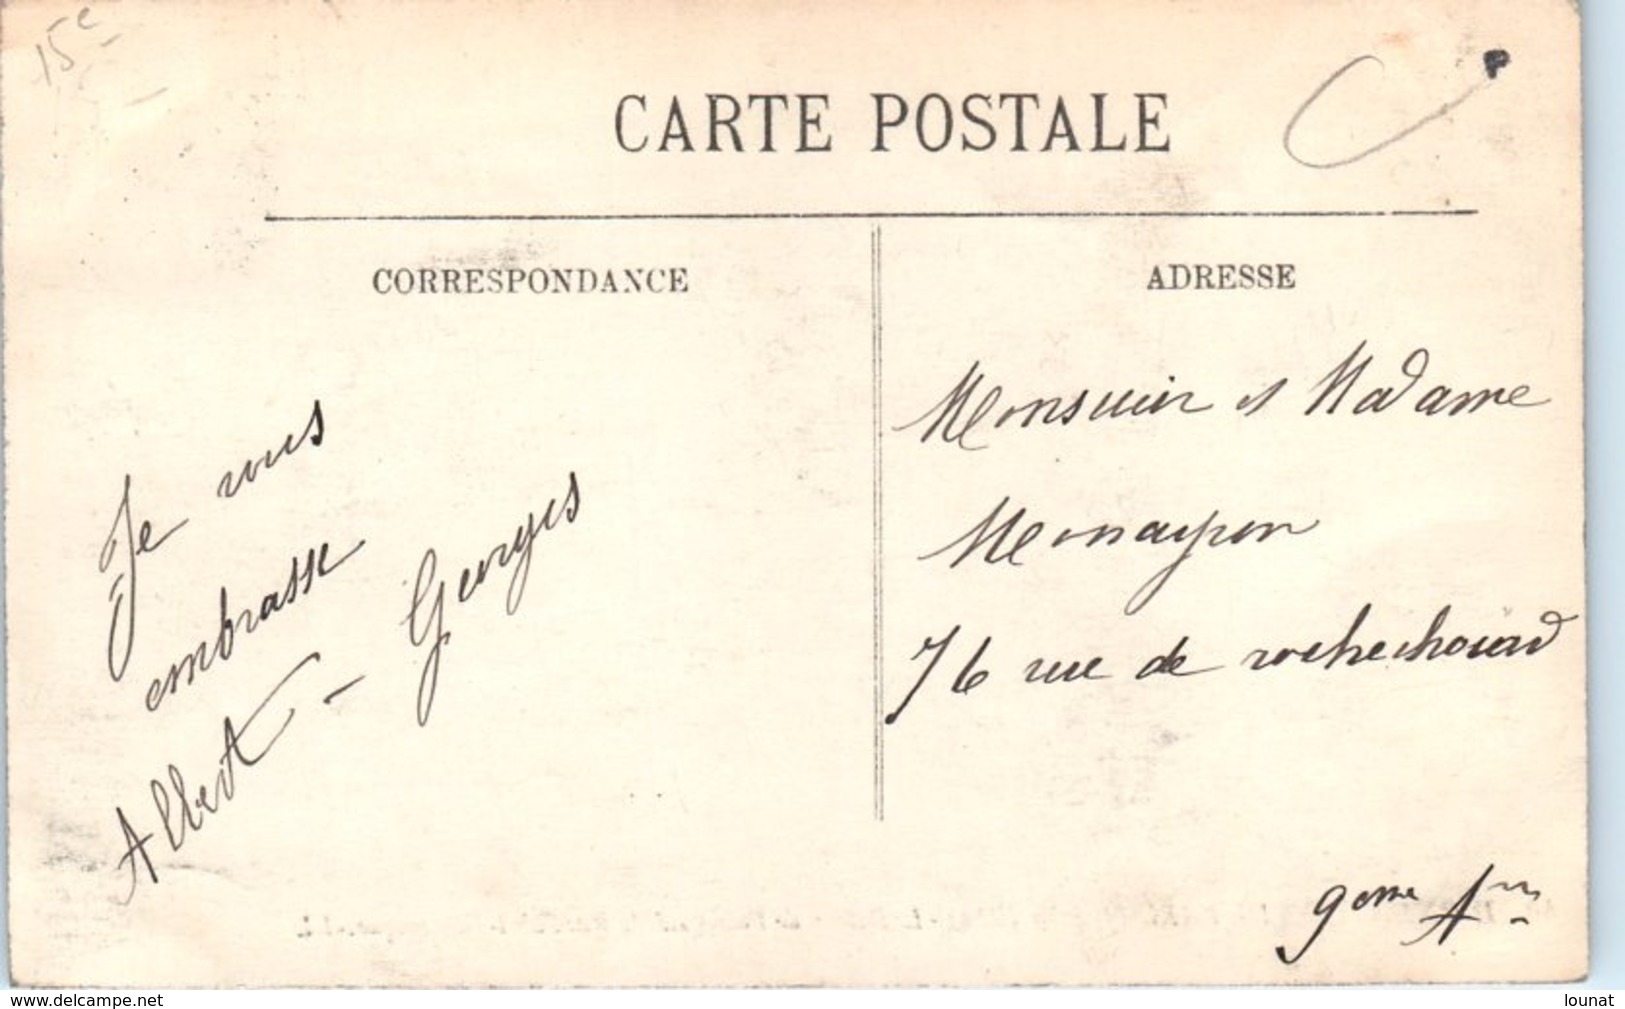 15e
CARTE POSTALE
CORRESPONDANCE
Je vous
embrasse
Albert - Georges
ADRESSE
Monsieur et Madame
76 rue de rochechouard
9eme Arr
www.delcampe.net
lounat